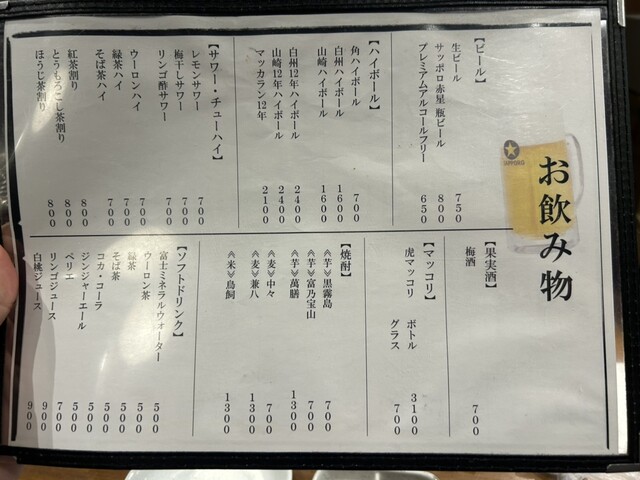 お飲み物
SAPPORO
【ビール】
生ビール 750
サッポロ赤星 瓶ビール 800
プレミアムアルコールフリー 650
【ハイボール】
角ハイボール 700
白州ハイボール 1600
山崎ハイボール 1600
白州12年ハイボール 2400
山崎12年ハイボール 2400
マッカラン12年 2100
【サワー・チューハイ】
レモンサワー 700
梅干しサワー 700
リンゴ酢サワー 700
ウーロンハイ 700
緑茶ハイ 700
そば茶ハイ 700
紅茶割り 800
とうもろこし茶割り 800
ほうじ茶割り 800
【果実酒】
梅酒 700
【マッコリ】
虎マッコリ ボトル 3100
グラス 700
【焼酎】
≪芋≫黒霧島 700
≪芋≫富乃宝山 700
≪芋≫萬膳 1300
≪麦≫中々 700
≪麦≫兼八 1300
≪米≫鳥飼 1300
【ソフトドリンク】
富士ミネラルウォーター 500
ウーロン茶 500
緑茶 500
そば茶 500
コカ・コーラ 500
ジンジャーエール 500
ペリエ 700
リンゴジュース 900
白桃ジュース 900